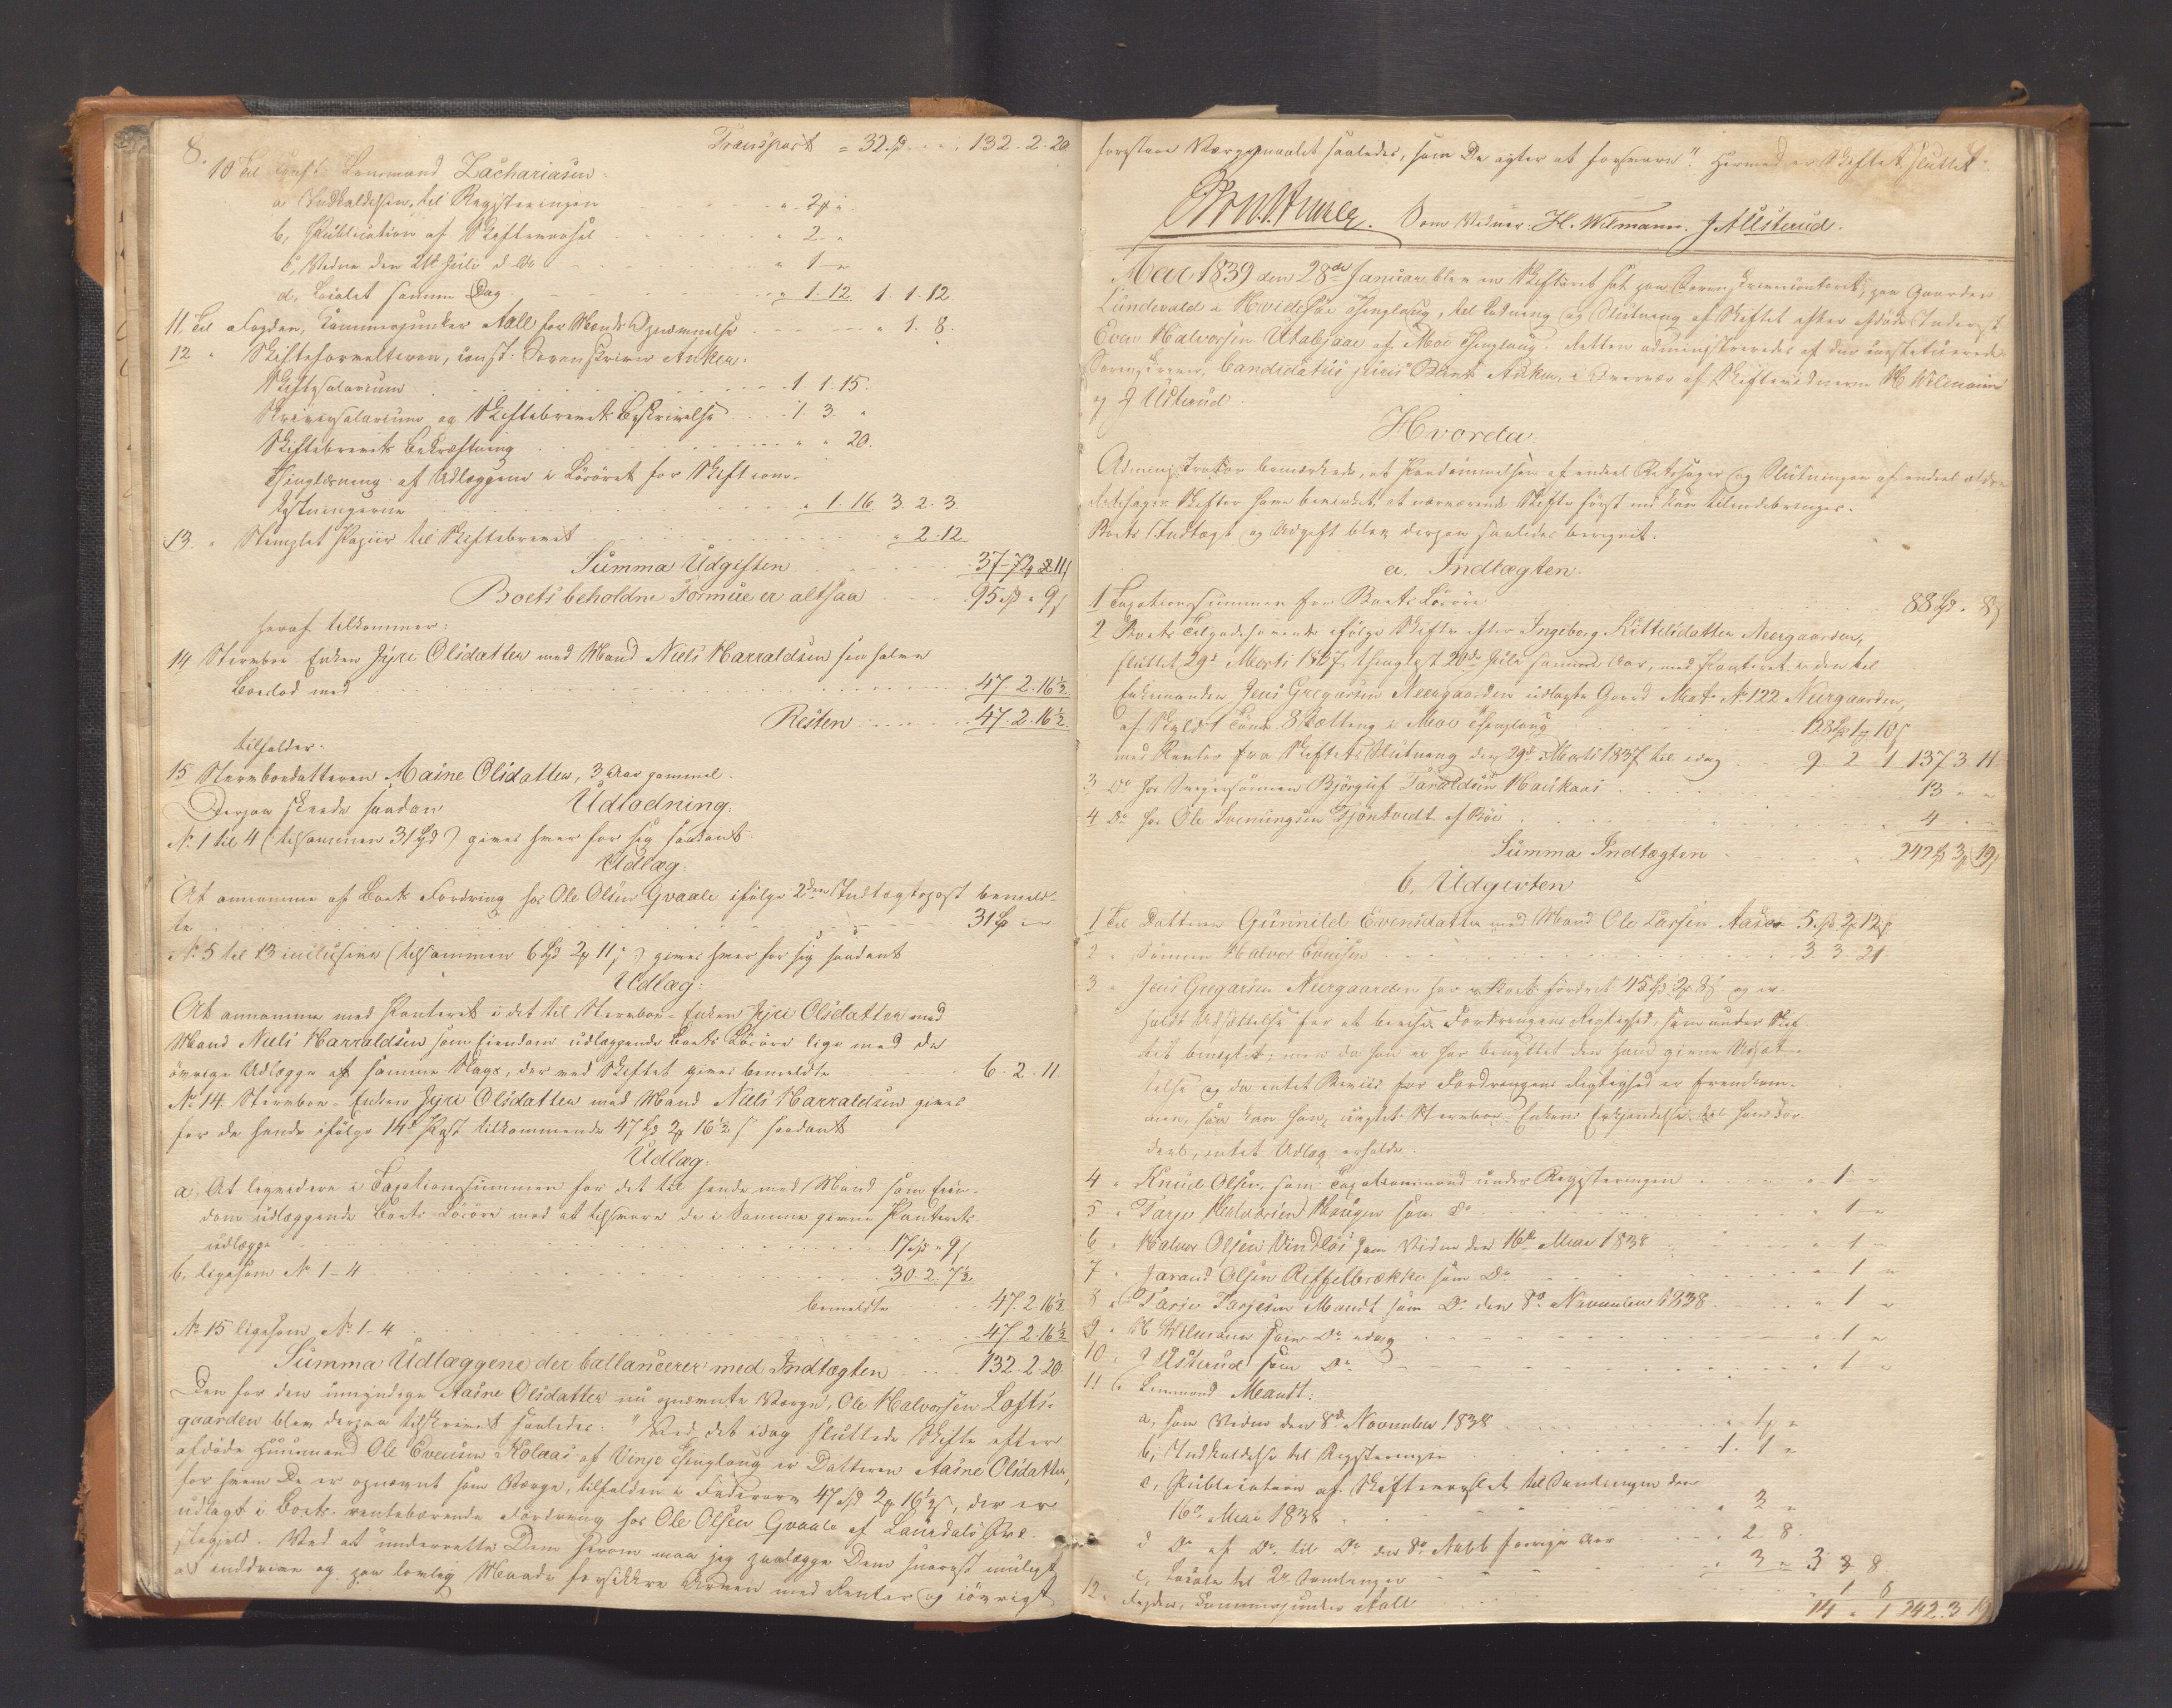 8.
Transport = 32 . . . . 132. 2. 20
10 Til Lensmand Zachariasen:
a Indkaldelsen til Registeringen . . . " 2 "
b, Publication af Skiftevarsel . . . " 2 "
c, Vidne den 21de Juli d. A. . . . " 1 "
d, Localet samme Dag . . . " 1. 12. 1. 1. 12.
11. Til Fogden, Kammerjunker Aall for Opnævnelse . . . " 1. 8.
12 " Skifteforvalteren, const: Sorenskriver Anker:
Skiftesalarium . . . 1. 1. 15.
Skriversalarium og Skiftebrevets Beskrivelse . . . 1. 3. "
Skiftebrevets Bekræftning . . . " " 20.
Thinglæsning af Udlæggene i Løsöret for Skifteom-
kostningerne . . . " 1. 16. 3. 2. 3.
13 " Stemplet Papiir til Skiftebrevet . . . " 2. 12
Summa Udgiften . . . 37
Boets beholdne Formue er altsaa . . . 95 " 9
heraf tilkommer:
14 Stervboe-Enken Jyri Olsdatter med Mand Niels Harraldsen sin halve
Boeslod med . . . 47. 2. 16½
Resten . . . 47. 2. 16½
tilfalder:
15 Stervboedatteren Aasne Olsdatter, 3 Aar gammel.
Derpaa skeede saadan Udlodning:
No 1 til 4 (tilsammen 31 Spd) gives hver for sig saadant
Udlæg:
At annamme af Boets Fordring hos Ole Olsen Gvaale ifølge 2den Indtægtspost bemeld-
te . . . 31 "
No 5 til 13 inclusive (tilsammen 6 Spd 2 11) gives hver for sig saadant
Udlæg:
At annamme med Panteret i det til Stervboe-Enken Jyri Olsdatter med
Mand Niels Harraldsen som Eiendom udlæggende Boets Løsøre lige med de
øvrige Udlægge af samme Slags, der ved Skiftet gives bemeldte . . . 6. 2. 11.
No 14. Stervboe-Enken Jyri Olsdatter med Mand Niels Harraldsen gives
for de hende ifølge 14de Post tilkommende 47 2 16½ saadant
Udlæg:
a, At liqvidere i Taxationssummen for det til hende med Mand som Eien-
dom udlæggende Boets Løsøre med at tilsvare de i Samme givne Panterets
udlægge . . . 17 " 9
b, ligesom No 1-4 . . . 30. 2. 7½
bemeldte . . . 47. 2. 16½
No 15 ligesom No 1-4 . . . 47. 2. 16½
Summa Udlæggene der ballancerer med Indtægten . . . 132. 2. 20.
Den for den umyndige Aasne Olsdatter nu opnævnte Værge, Ole Halvorsen Lofts-
gaarden blev derpaa tilskrevet saaledes: "Ved det idag sluttede Skifte efter
afdøde Huusmand Ole Evensen Kolaas af Vinje Thinglaug er Datteren Aasne Olsdatter,
for hvem De er opnævnt som Værge, tilfalden i Fædrearv 47 2 16½, der er
udlagt i Boets rentebærende Fordring hos Ole Olsen Gvaale af Laurdals Præ-
stegjeld. Ved at underrette Dem herom maa jeg paalægge Dem snarest muligt
at inddrive og paa lovlig Maade forsikkre Arven med Renter og iøvrigt
forestaae Værgemaalet saaledes, som De agter at forsvare". Hermed er Skiftet sluttet.
Anker. Som Vidner: H. Wilmann. J Alstrud.
Aar 1839 den 28de Januar blev en Skifteret sat paa Sorenskrivercontoret, paa Gaarden
Lundevald i Hvidesøe Thinglaug, til Lodning og Slutning af Skiftet efter afdøde Inderst
Even Halvorsen Utabjaae af Moe Thinglaug. Retten administreredes af den constituerede
Sorenskriver, Candidatus juris Bernt Anker, i Overvær af Skiftevidnerne H Wilmann
og J Ustrud.
Hvorda
Administrator bemærkede, at Paadømmelsen af endeel Retssager og Slutningen af endeel ældre
Skifter have bevirket, at nærværende Skifte først nu kan tilendebringes.
Boets Indtægt og Udgift blev derpaa saaledes beregnet:
a. Indtægten.
1 Taxationssummen for Boets Løsøre . . . 88 " 8
2 Boets Tilgodehavende ifølge Skifte efter Ingeborg Kittilsdatter Neergaarden,
sluttet 29de Marti 1837, thinglyst 20de Juli samme Aar, med Panteret i den til
Enkemanden Jens Gregarsen Neergaarden udlagte Gaard Mat: No 122 Neergaarden,
af Skyld 1 Tønde 8 Sætting i Moe Thinglaug . . . 128 1 10
med Renter fra Skiftets Slutning den 29de Marti 1837 til idag . . . 9. 2. 1 137. 3. 11
3 Do hos Svigersønnen Bjørguf Taraldsen Haukaas . . . 13 " "
4 Do hos Ole Sveinungsen Tjöntvedt af Böe . . . 4 " "
Summa Indtægten . . . 242 3 19
b, Udgivten
1 Til Datteren Gunnild Evensdatter med Mand Ole Larsen Aase 5 2 12
2 " Sønnen Halvor Evensen . . . 3. 3. 21
3 " Jens Gregarsen Neergaarden har i Boet fordret 45 3 8 og er-
holdt Udsættelse for at bevise Fordringens Rigtighed, som under Skif-
tet benægtet; men da han ei har benyttet den ham givne Udsæt-
telse og da intet Beviis for Fordringens Rigtighed er fremkom-
men, saa kan han, uagtet Stervboe-Enkens Erkjendelse for
intet Udlæg erholde.
4 " Knud Olsen, som Taxationsmand under Registeringen . . . " 1 "
5 " Tarje Halvorsen Haugen som Do . . . " 1 "
6 " Halvor Olsen Vindlös som Vidne den 16de Mai 1838 . . . " 1 "
7 " Jarand Olsen Reffelbrække som Do . . . " 1 "
8 " Tarje Tarjesen Mandt som Do den 8de November 1838 . . . " 1 "
9 " H Wilmann som Do idag . . . " 1 "
10 " J Ustrud som Do . . . " 1 "
11 " Lensmand Mandt:
a, som Vidne den 8de November 1838 . . . " 1 "
b, Indkaldelse til Registeringen . . . 1. 1 "
c, Publication af Skiftevarslet til Samlingen den
16de Mai 1838 . . . " 2 "
d Do af Do til Do den 8de forrige Aar . . . " 2. 8.
e, Locale til 2de Samlinger . . . " 3 " 3 3 8
12 " Fogden, Kammerjunker Aall . . . " 1 8
14 " 1 242. 3 19